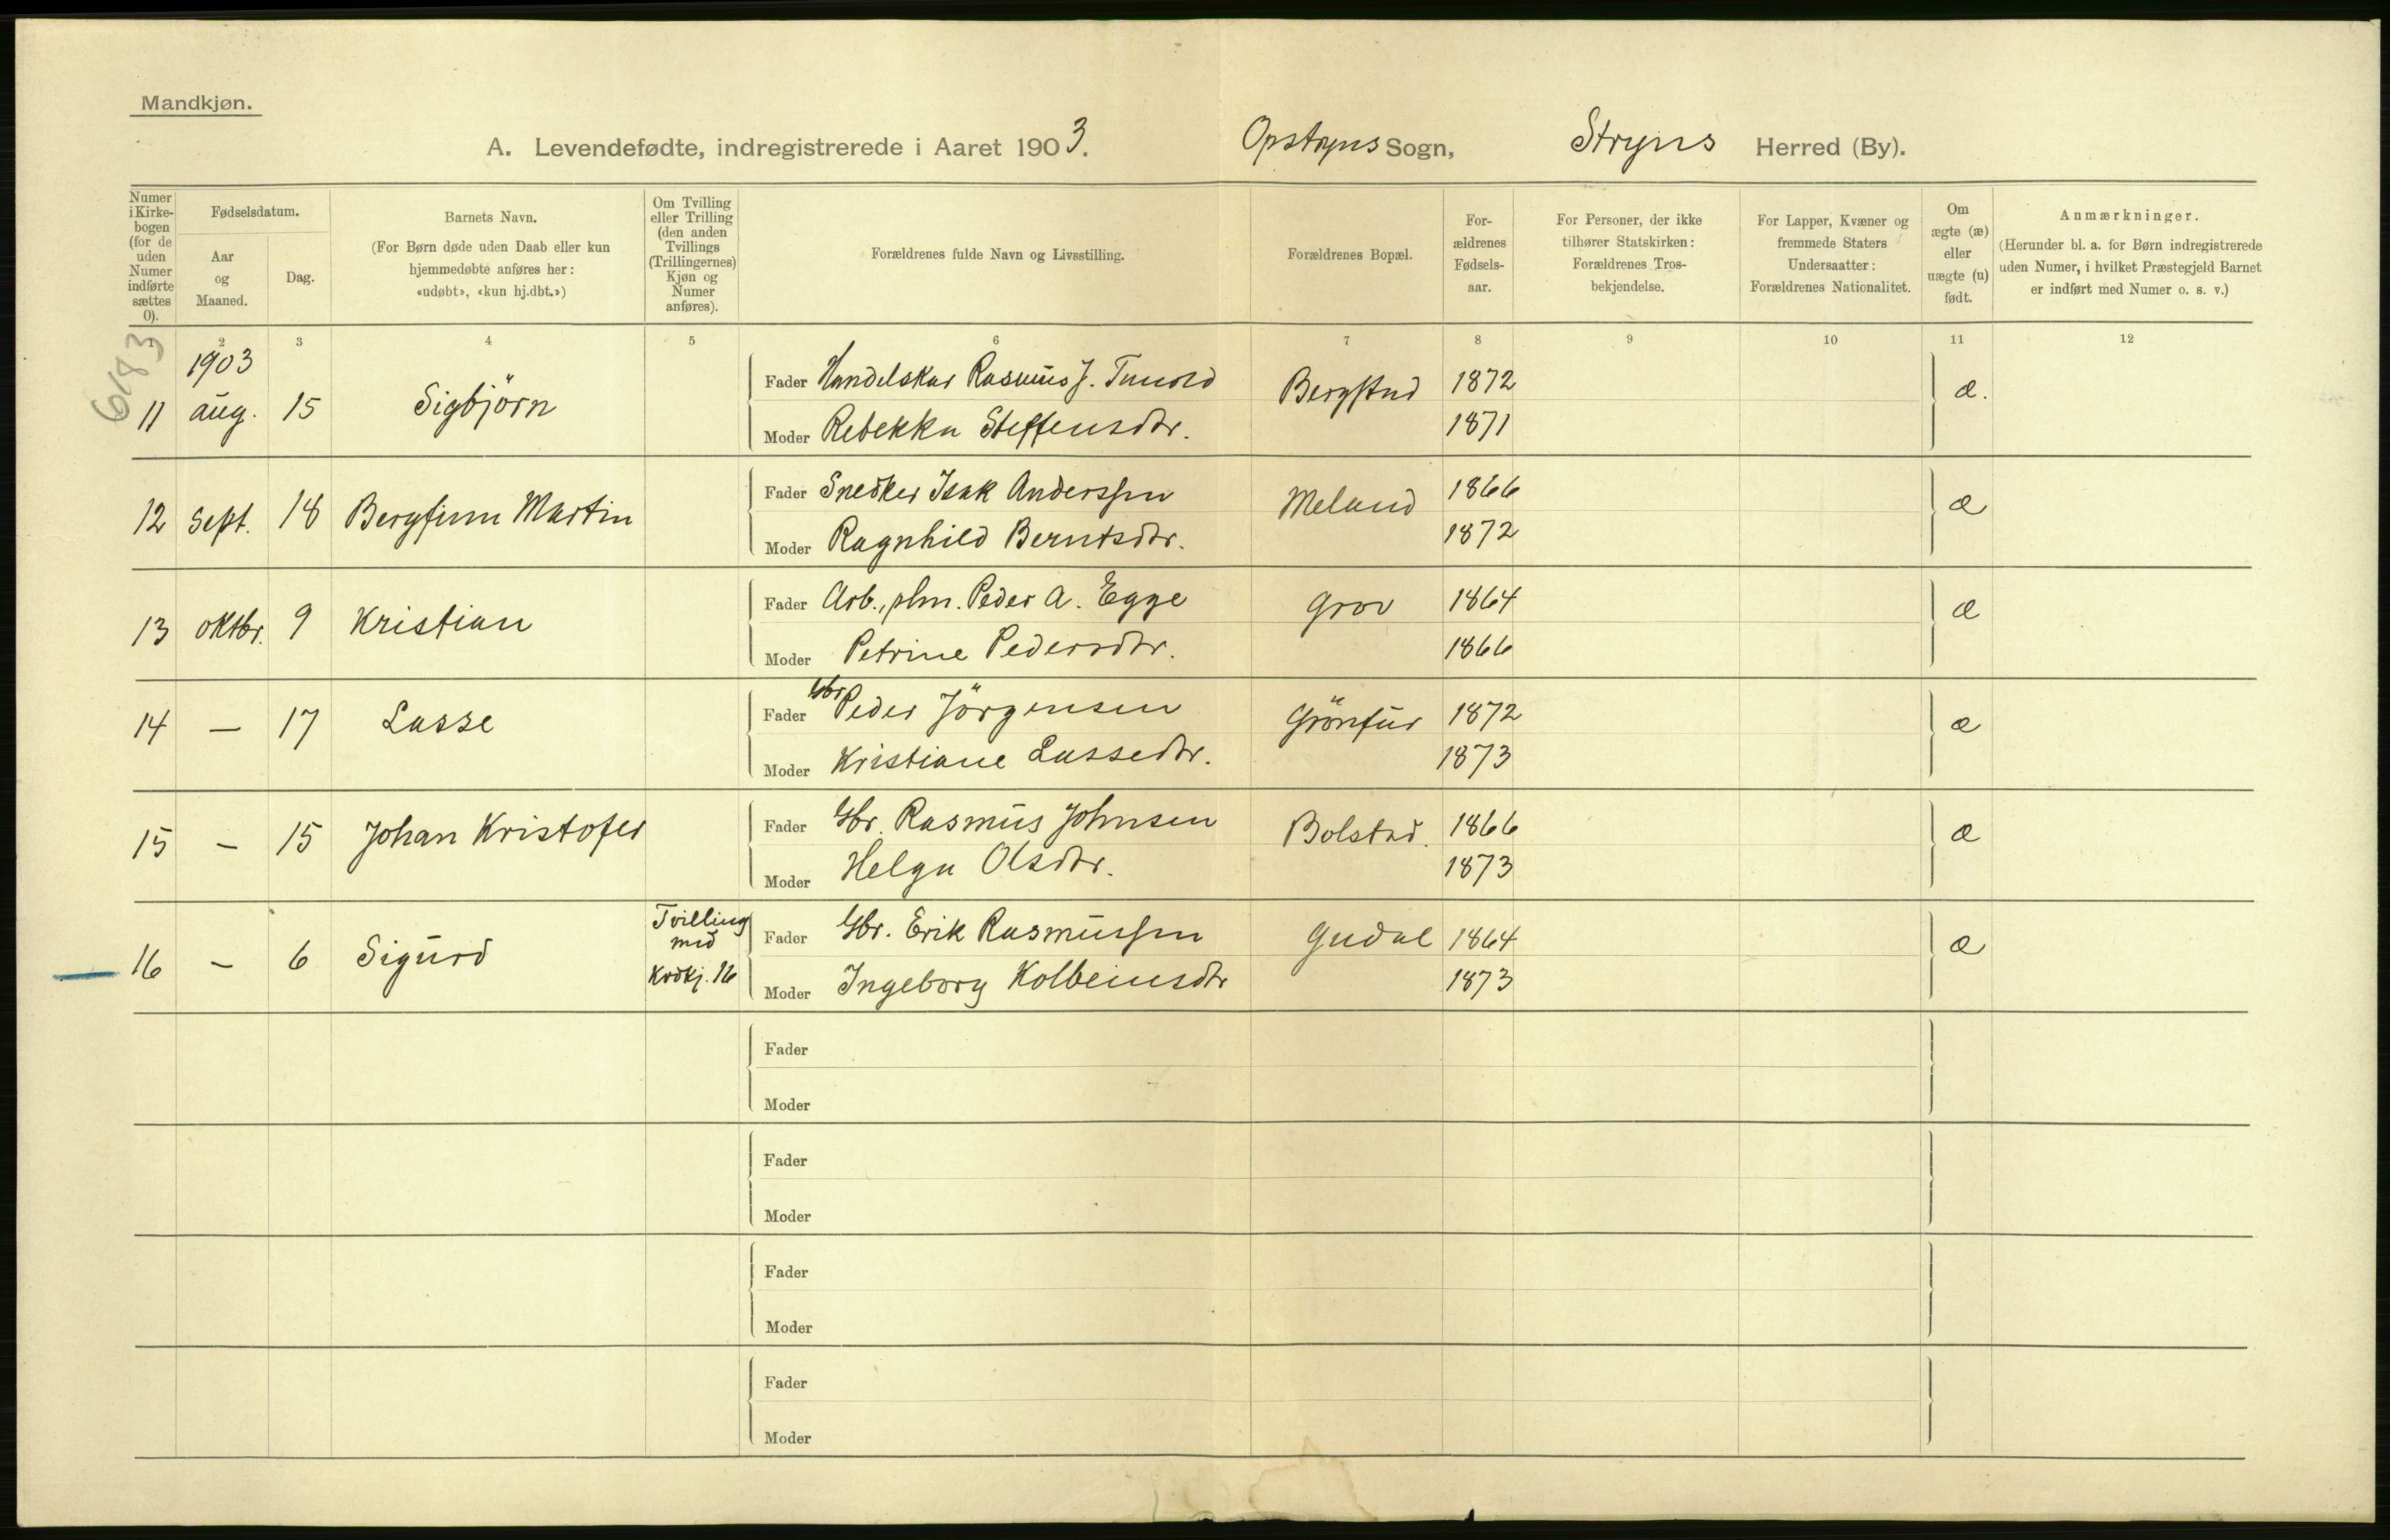 Mandkjøn.
A. Levendefødte, indregistrerede i Aaret 1903. Opstryns Sogn, Stryns Herred (By).
Numer i Kirkebogen (for de uden Numer indførte sættes 0).
Fødselsdatum.
Aar og Maaned.
Dag.
Barnets Navn.
(For Børn døde uden Daab eller kun hjemmedøbte anføres her: «udøbt», «kun hj.dbt.»)
Om Tvilling eller Trilling (den anden Tvillings (Trillingernes) Kjøn og Numer anføres).
Forældrenes fulde Navn og Livsstilling.
Forældrenes Bopæl.
Forældrenes Fødselsaar.
For Personer, der ikke tilhører Statskirken: Forældrenes Trosbekjendelse.
For Lapper, Kvæner og fremmede Staters Undersaatter: Forældrenes Nationalitet.
Om ægte (æ) eller uægte (u) født.
Anmærkninger.
(Herunder bl. a. for Børn indregistrerede uden Numer, i hvilket Præstegjeld Barnet er indført med Numer o. s. v.)
2 3 4 5 6 7 8 9 10 11 12
6183
1903
11 aug. 15 Sigbjörn Fader Handelskar Rasmus J. Tunold Bergstad 1872 æ.
Moder Rebekka Steffensdtr. 1871
12 Sept. 18 Bergfinn Martin Fader Snedker Isak Anderssen Meland 1866 æ
Moder Ragnhild Berntsdtr. 1872
13 oktbr. 9 Kristian Fader Arb., plm. Peder A. Egge Grov 1864 æ
Moder Petrine Pedersdtr. 1866
14 — 17 Lasse Fader Gbr Peder Jörgensen Grönfur 1872 æ
Moder Kristiane Lassedtr. 1873
15 - 15 Johan Kristofer Fader Gbr. Rasmus Johnsen Bolstad. 1866 æ
Moder Helga Olsdtr. 1873
16 - 6 Sigurd Tvilling med Kvdkj. 16 Fader Gbr. Erik Rasmussen Gudal 1864 æ
Moder Ingeborg Kolbeinsdtr 1873
Fader
Moder
Fader
Moder
Fader
Moder
Fader
Moder